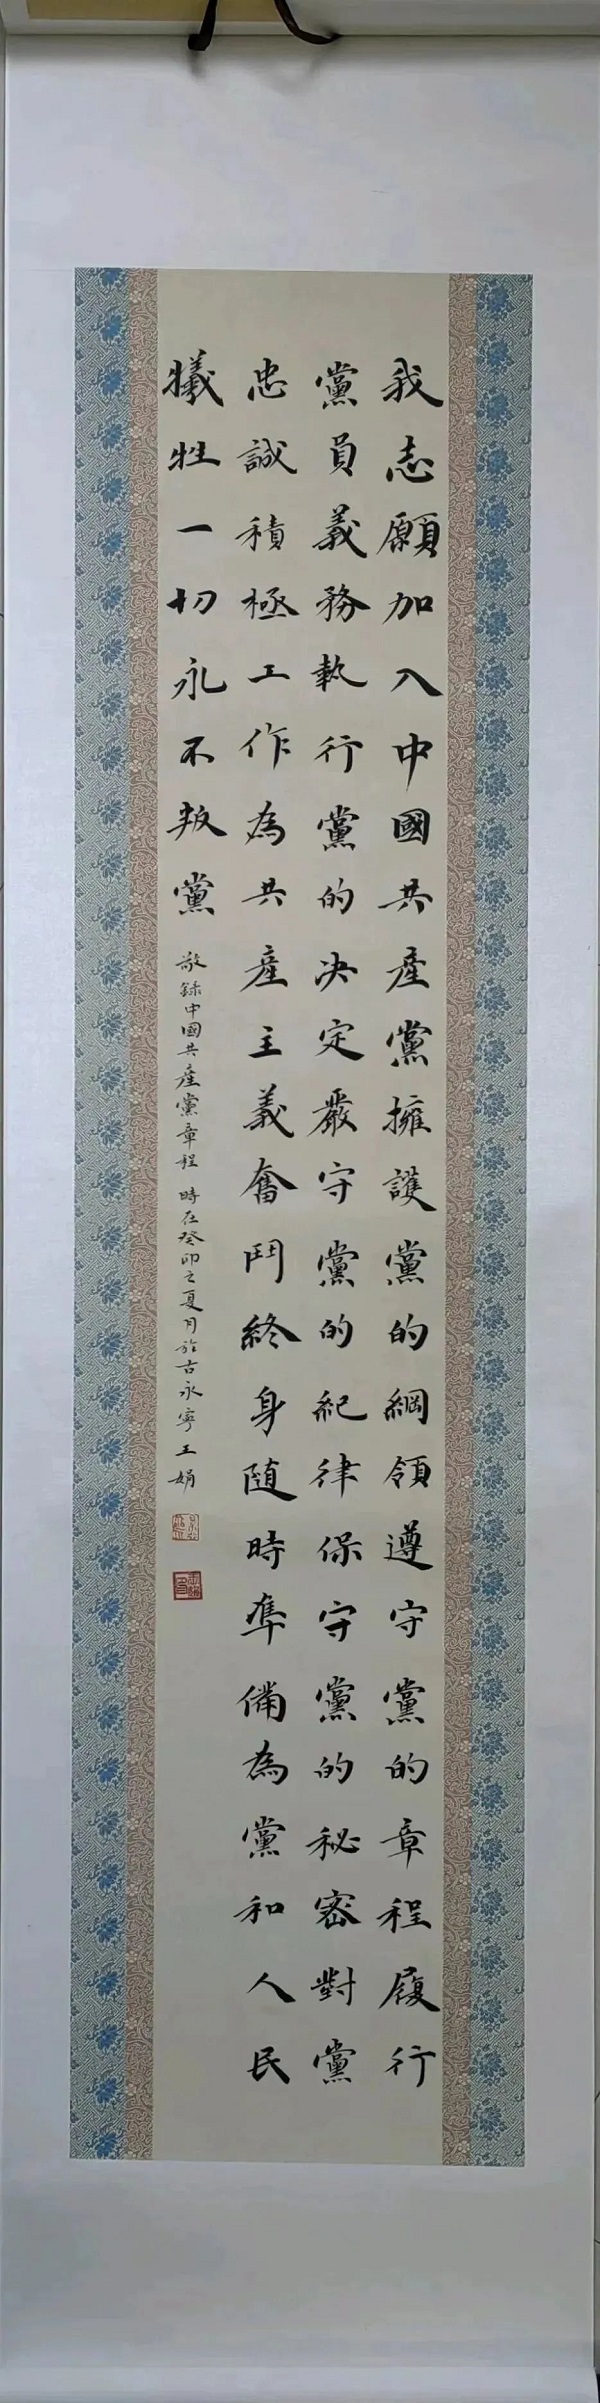 我志願加入中國共產黨擁護黨的綱領遵守黨的章程履行
黨員義務執行黨的決定嚴守黨的紀律保守黨的秘密對黨
忠誠積極工作為共產主義奮鬥終身隨時準備為黨和人民
犧牲一切永不叛黨
敬錄中國共產黨章程 時在癸卯之夏月於古永寧王娟